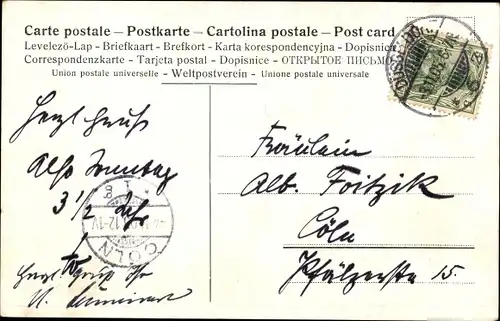 Carte postale – Postkarte – Cartolina postale – Post card
Levelezö-Lap - Briefkaart - Brefkort - Karta korespondencyjna - Dopisnica
Correspondenzkarte - Tarjeta postal - Dopisnice - ОТКРЫТОЕ ПИСЬМО
Union postale universelle - Weltpostverein - Unione postale universale
Herzl Gruß
Also Sonntag
3 1/2 Uhr
Herzl Gruß Ihr
Fräulein
Alb. Foitzik
Cöln
Pfälzerstr 15.
CÖLN